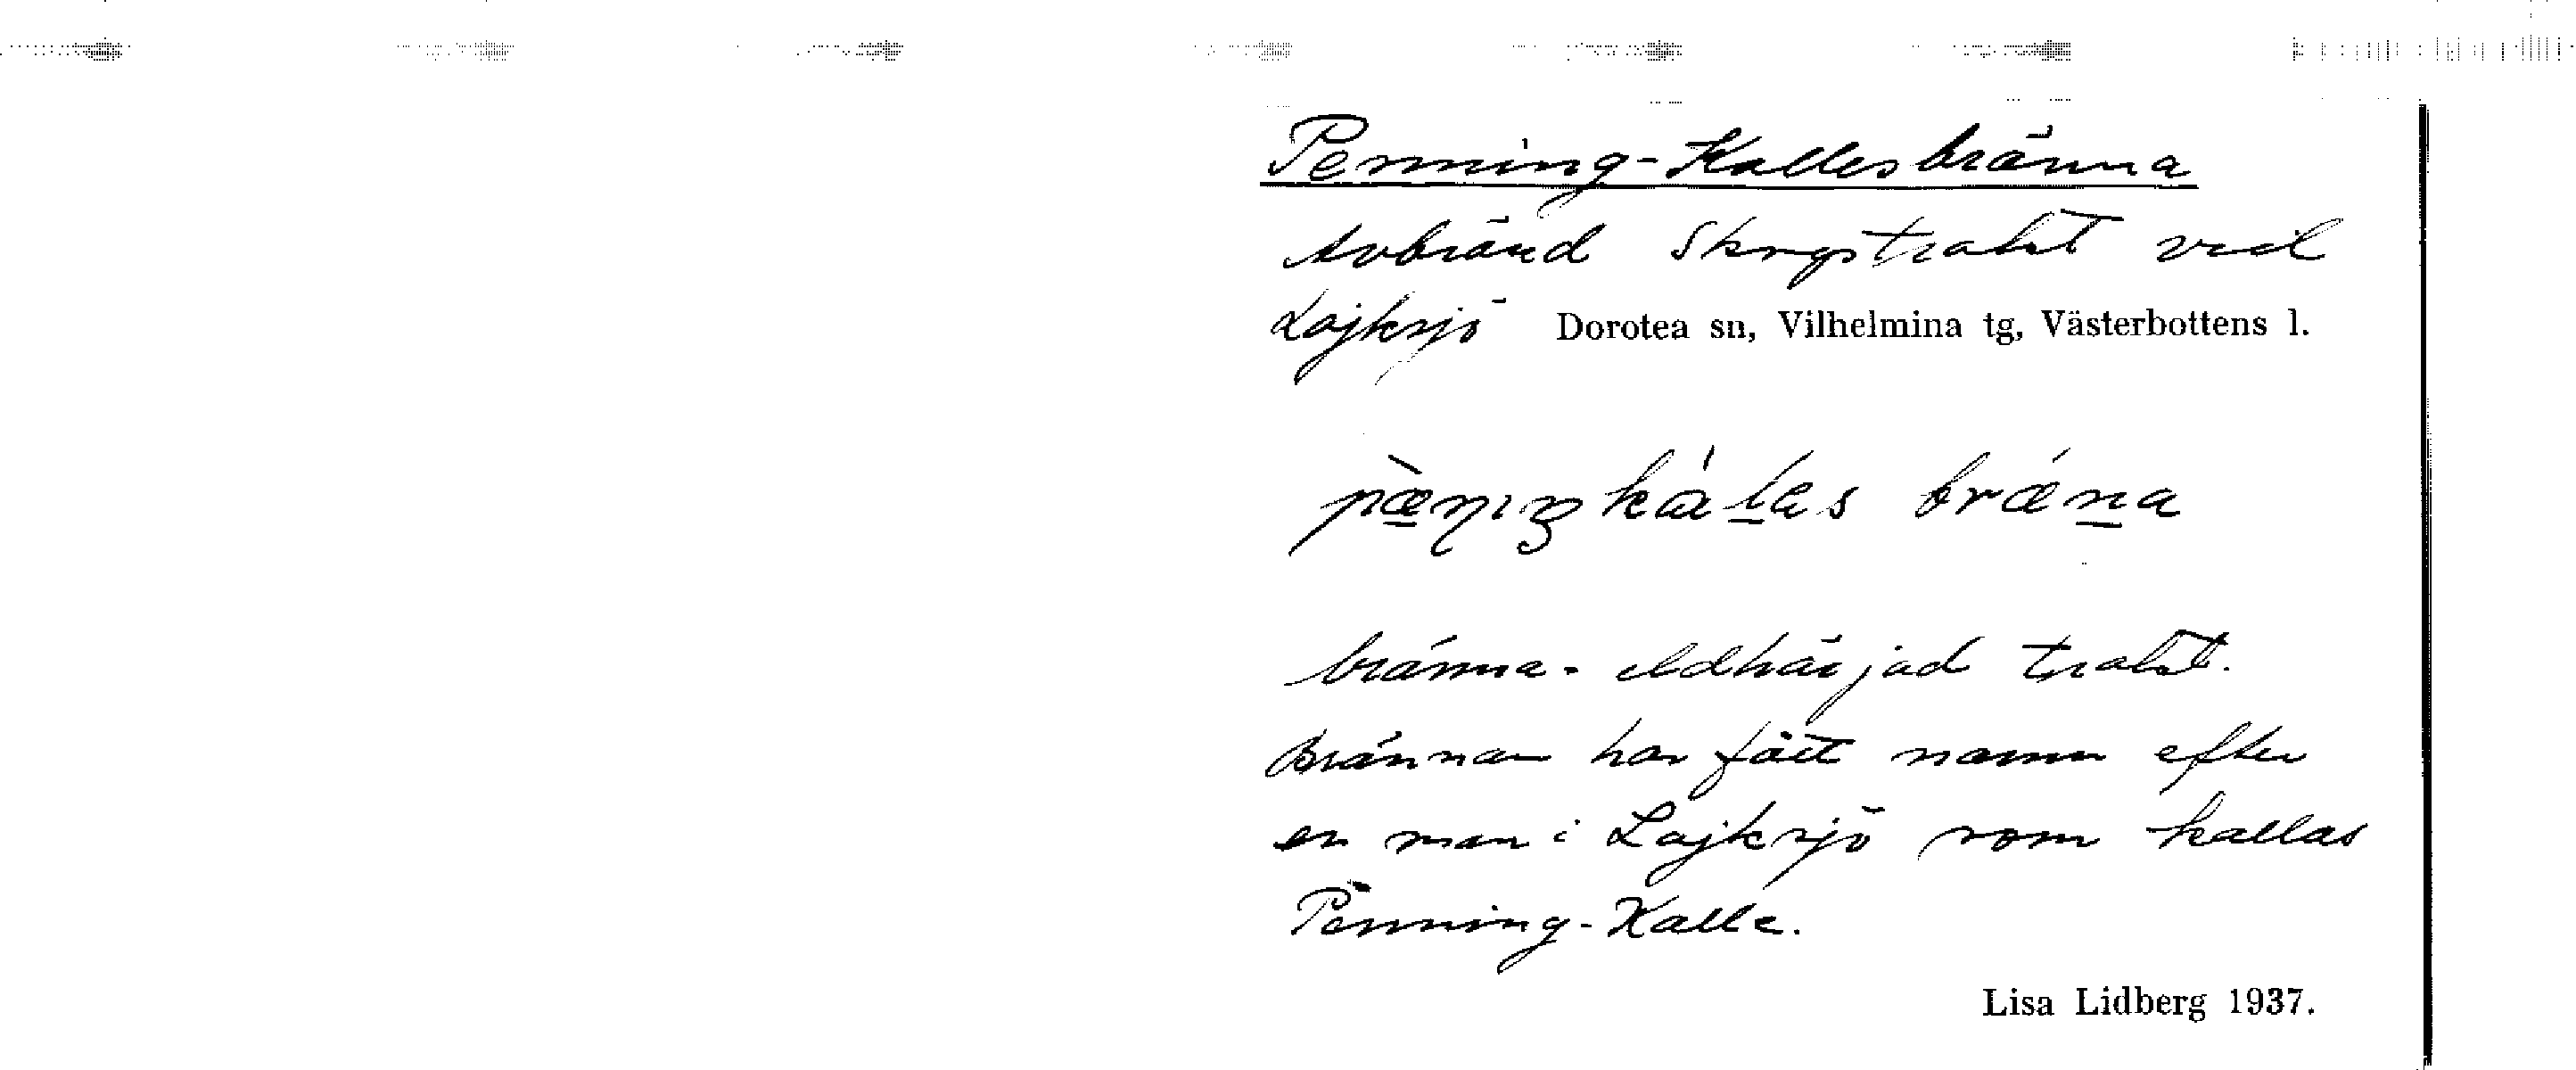 Penning-Kallesbränna
Avbränd Skogstrakt vid
Lajksjö Dorotea sn, Vilhelmina tg, Västerbottens l.
pæ̀nıŋkálas brǽna
bränna - eldhärjad trakt.
Brännan har fått namn efter
en man i Lajksjö som kallas
Penning-Kalle.
Lisa Lidberg 1937.